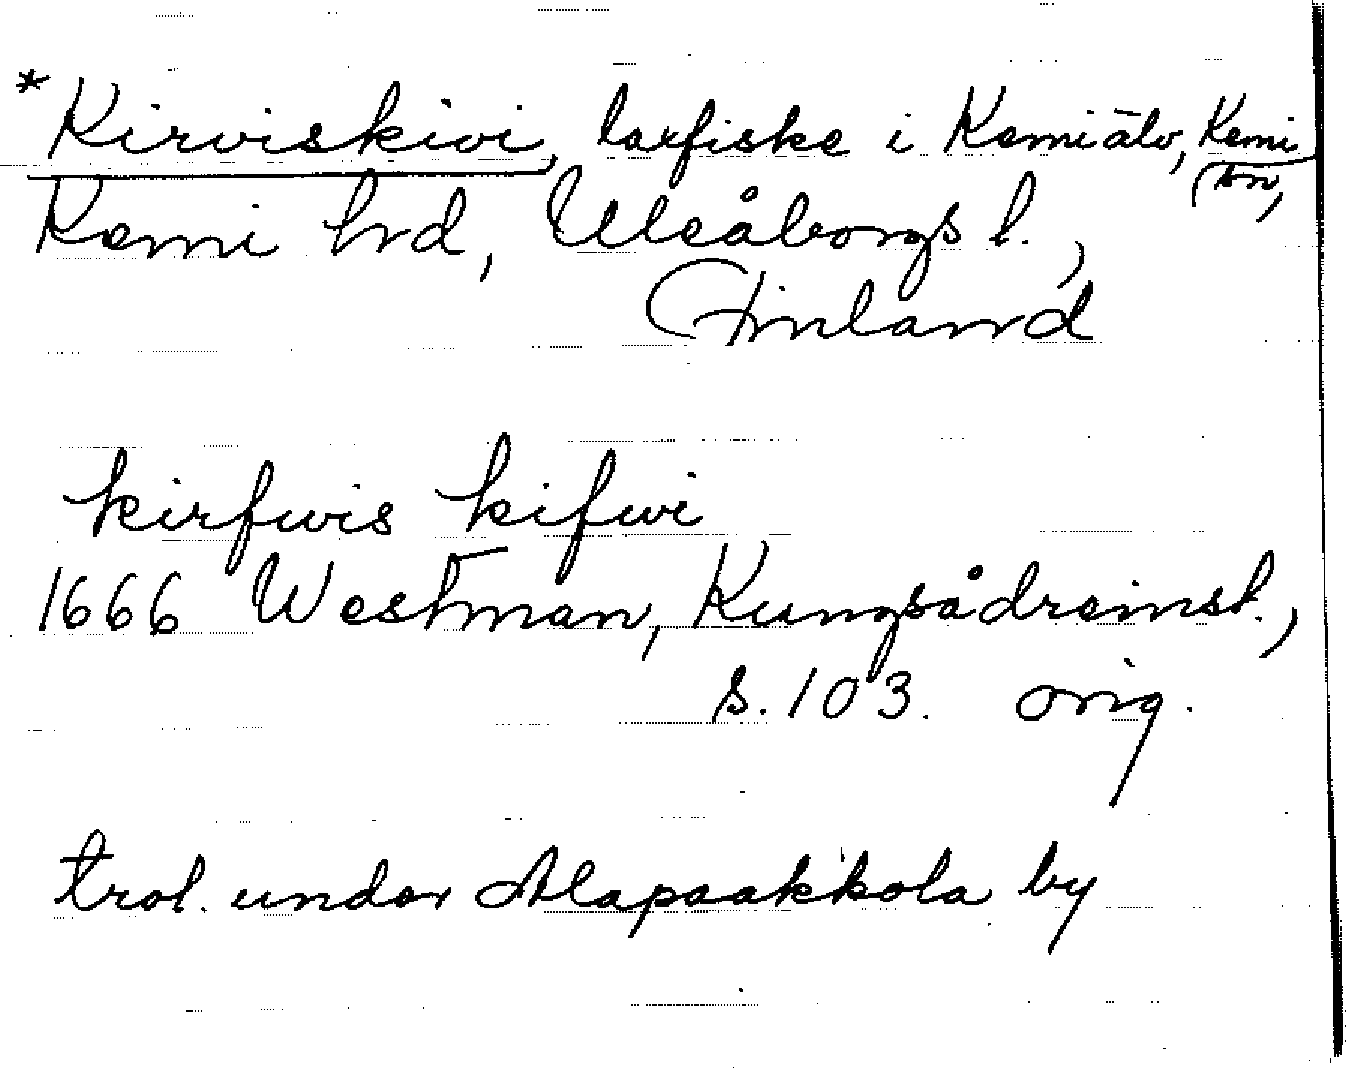 *Kirviskivi, laxfiske i Kemiälv, Kemi
(sn,
Kemi hrd, Uleåborgs l.,
Finland
kirfwis kifwi
1666 Westman, Kungsådreinst.,
s. 103. orig.
trol. under Alapaakkola by